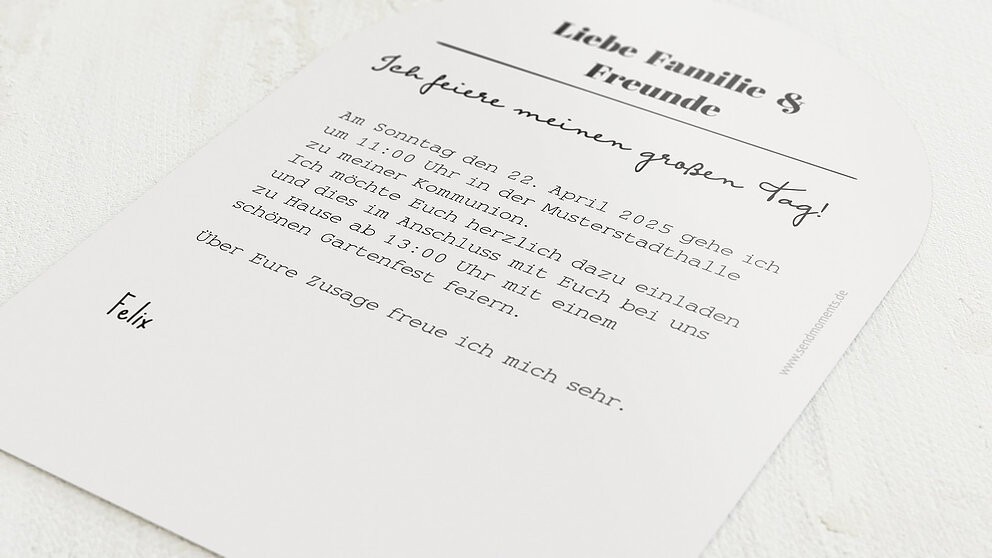 Liebe Familie &
Freunde
Ich feiere meinen großen Tag!
Am Sonntag den 22. April 2025 gehe ich
um 11:00 Uhr in der Musterstadthalle
zu meiner Kommunion.
Ich möchte Euch herzlich dazu einladen
und dies im Anschluss mit Euch bei uns
zu Hause ab 13:00 Uhr mit einem
schönen Gartenfest feiern.
Über Eure Zusage freue ich mich sehr.
Felix
www.sendmoments.de